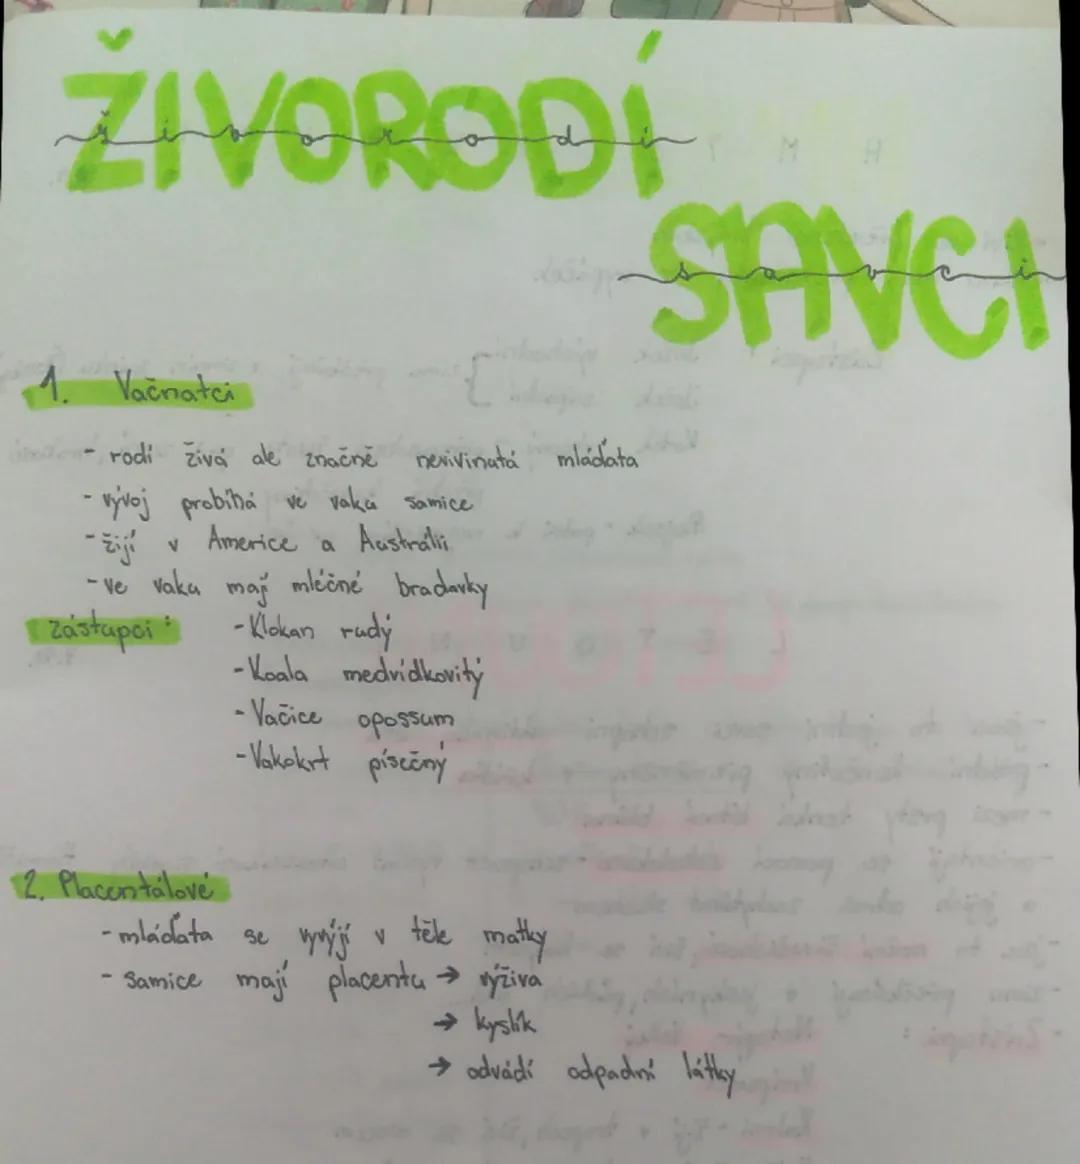 ŽIVORODÍ
živorodí
SAVCI
savci
1. Vačnatci
- rodí živá ale značně nevivinutá mláďata
- vývoj probíhá ve vaku samice
- žijí v Americe a Austrálii
- ve vaku mají mléčné bradavky
zástupci: - Klokan rudý
- Koala medvídkovitý
- Vačice opossum
- Vakokrt písečný
2. Placentálové
- mláďata se vyvýjí v těle matky
- samice mají placentu → výživa
→ kyslík
→ odvádí odpadní látky